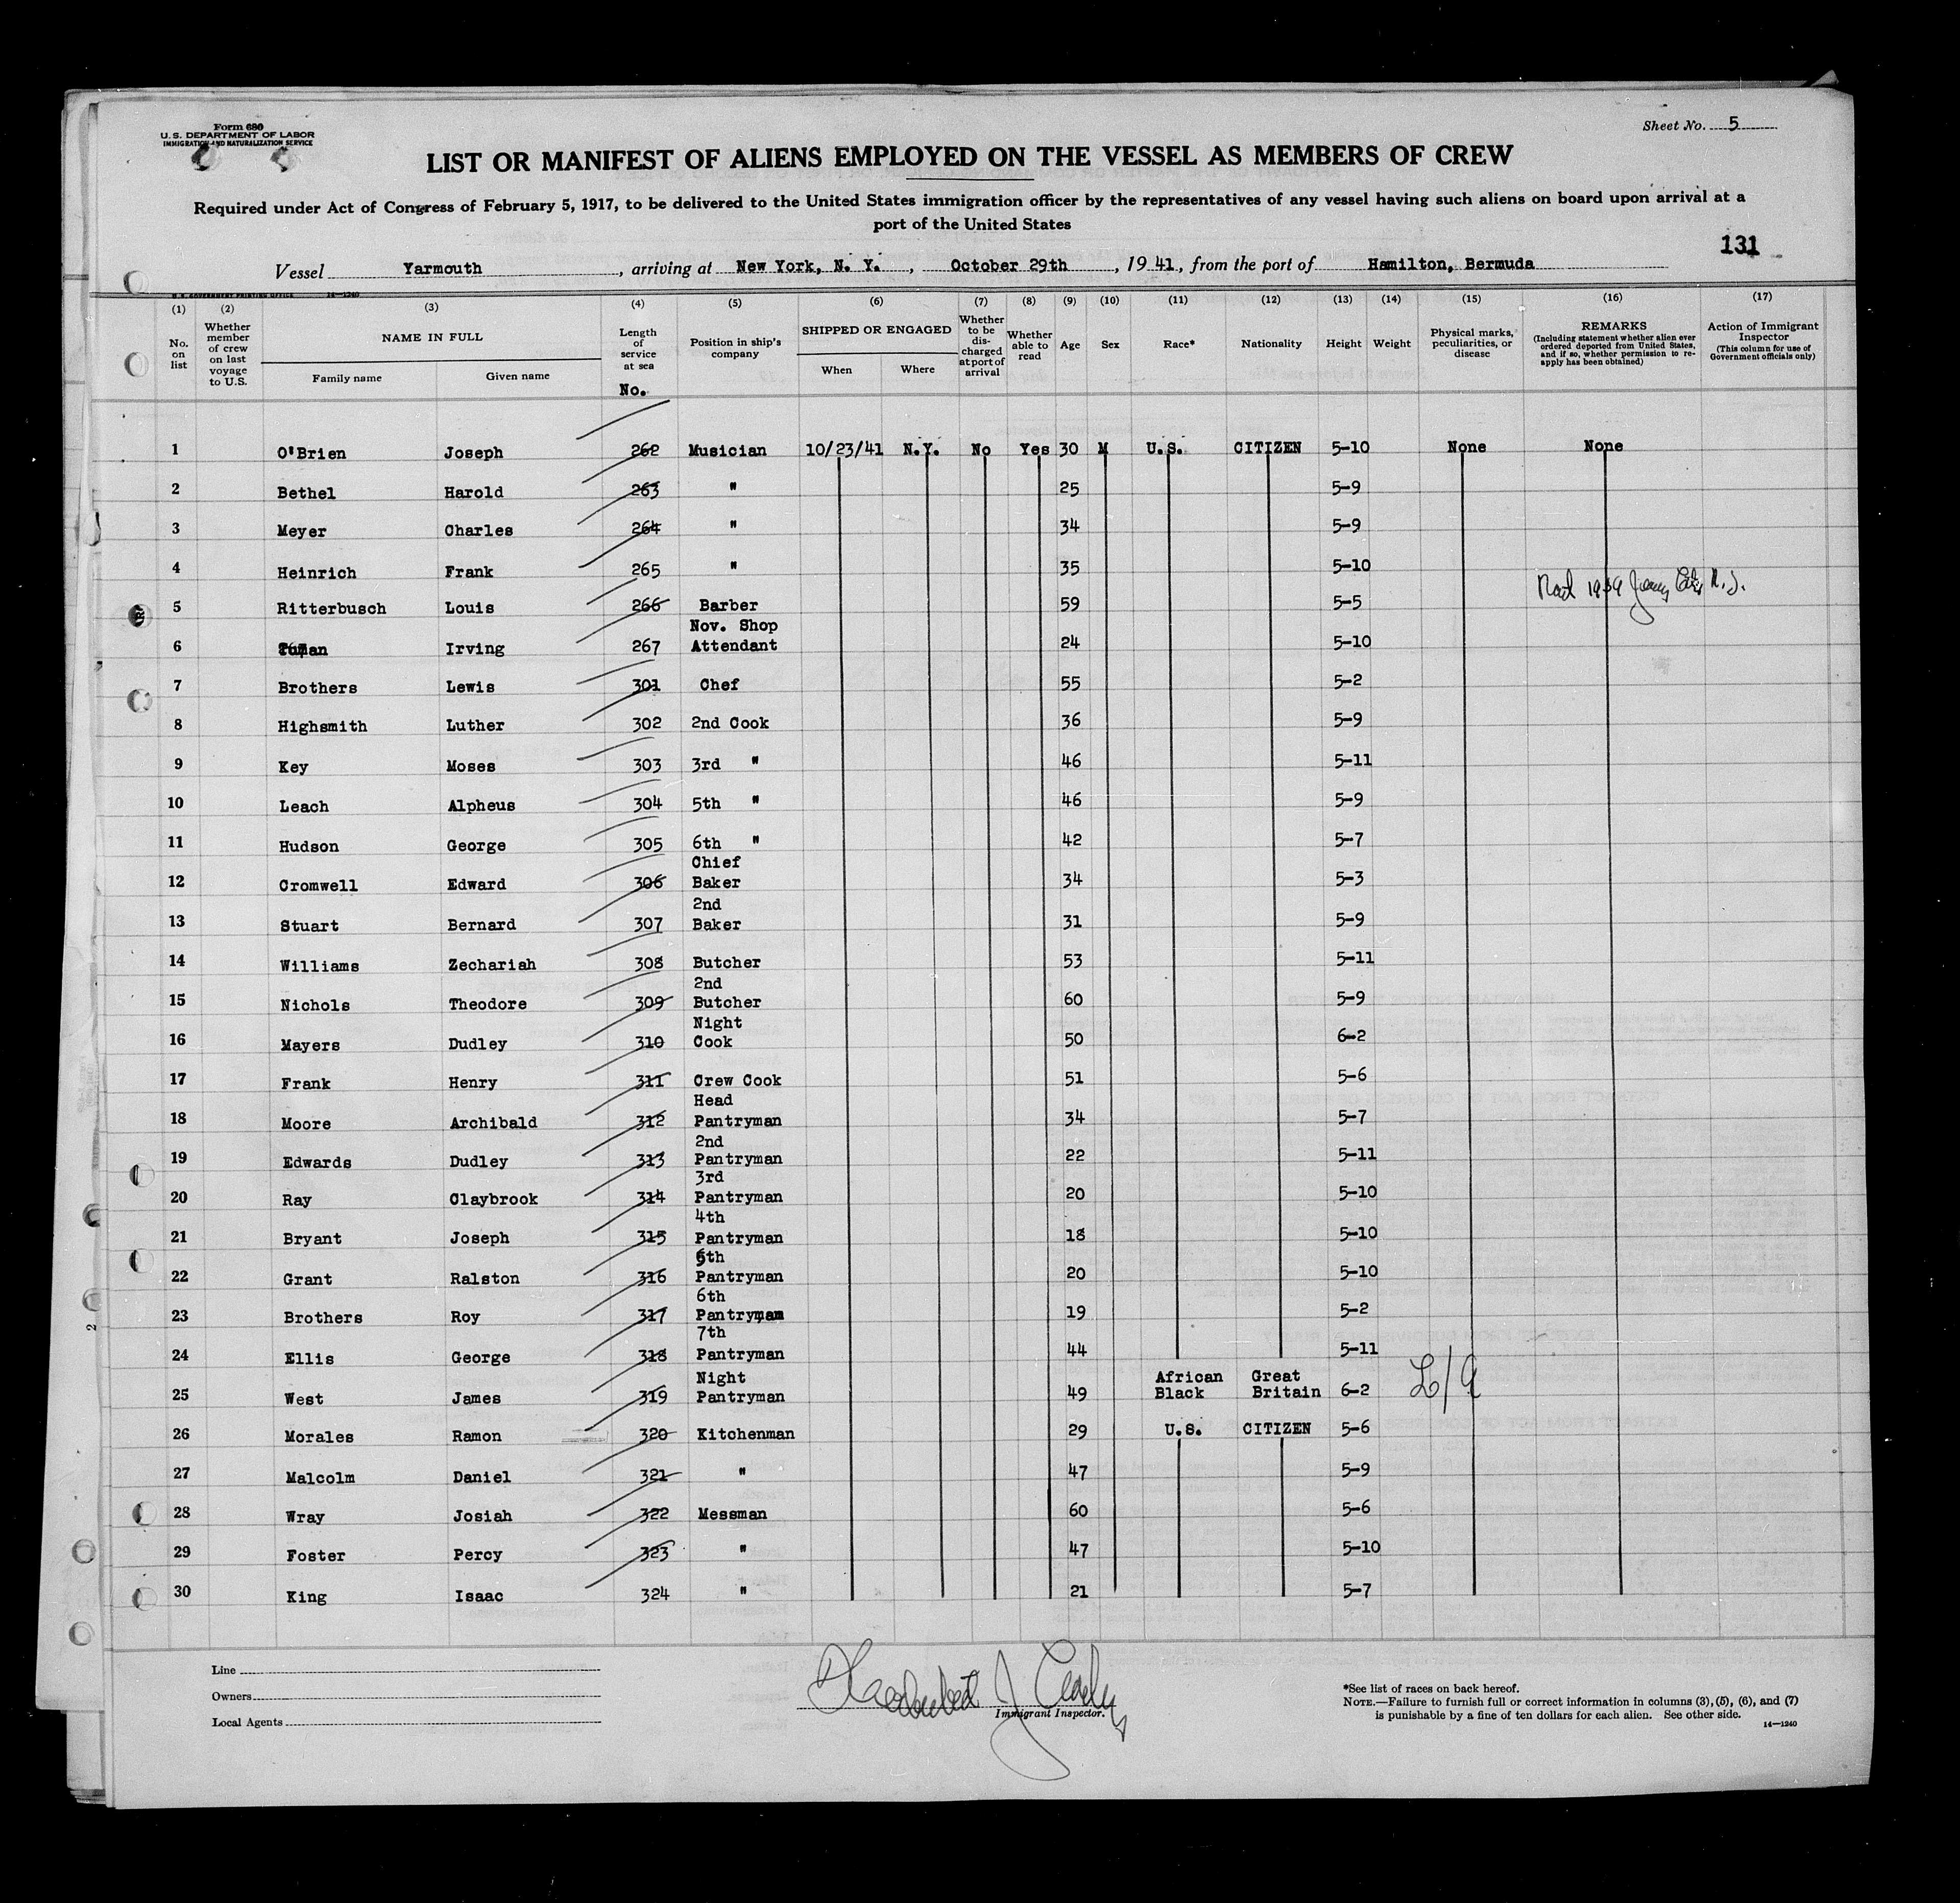 Form 680
U. S. DEPARTMENT OF LABOR
IMMIGRATION AND NATURALIZATION SERVICE
Sheet No. 5
LIST OR MANIFEST OF ALIENS EMPLOYED ON THE VESSEL AS MEMBERS OF CREW
Required under Act of Congress of February 5, 1917, to be delivered to the United States immigration officer by the representatives of any vessel having such aliens on board upon arrival at a
port of the United States
131
Vessel Yarmouth, arriving at New York, N. Y., October 29th, 1941, from the port of Hamilton, Bermuda
U. S. GOVERNMENT PRINTING OFFICE 14—1240
(1) (2) (3) (4) (5) (6) (7) (8) (9) (10) (11) (12) (13) (14) (15) (16) (17)
No. on list
Whether member of crew on last voyage to U.S.
NAME IN FULL
Family name Given name
Length of service at sea
No.
Position in ship's company
SHIPPED OR ENGAGED
When Where
Whether to be discharged at port of arrival
Whether able to read
Age
Sex
Race*
Nationality
Height
Weight
Physical marks, peculiarities, or disease
REMARKS
(Including statement whether alien ever ordered deported from United States, and if so, whether permission to re-apply has been obtained)
Action of Immigrant Inspector
(This column for use of Government officials only)
1 O'Brien Joseph 262 Musician 10/23/41 N.Y. No Yes 30 M U.S. CITIZEN 5-10 None None
2 Bethel Harold 263 " 25 5-9
3 Meyer Charles 264 " 34 5-9
4 Heinrich Frank 265 " 35 5-10
5 Ritterbusch Louis 266 Barber 59 5-5 N.J.
6 Irving 267 Nov. Shop Attendant 24 5-10
7 Brothers Lewis 301 Chef 55 5-2
8 Highsmith Luther 302 2nd Cook 36 5-9
9 Key Moses 303 3rd " 46 5-11
10 Leach Alpheus 304 5th " 46 5-9
11 Hudson George 305 6th " 42 5-7
12 Cromwell Edward 306 Chief Baker 34 5-3
13 Stuart Bernard 307 2nd Baker 31 5-9
14 Williams Zechariah 308 Butcher 53 5-11
15 Nichols Theodore 309 2nd Butcher 60 5-9
16 Mayers Dudley 310 Night Cook 50 6-2
17 Frank Henry 311 Crew Cook 51 5-6
18 Moore Archibald 312 Head Pantryman 34 5-7
19 Edwards Dudley 313 2nd Pantryman 22 5-11
20 Ray Claybrook 314 3rd Pantryman 20 5-10
21 Bryant Joseph 315 4th Pantryman 18 5-10
22 Grant Ralston 316 5th Pantryman 20 5-10
23 Brothers Roy 317 6th Pantryman 19 5-2
24 Ellis George 318 7th Pantryman 44 5-11
25 West James 319 Night Pantryman 49 African Black Great Britain 6-2
26 Morales Ramon 320 Kitchenman 29 U.S. CITIZEN 5-6
27 Malcolm Daniel 321 " 47 5-9
28 Wray Josiah 322 Messman 60 5-6
29 Foster Percy 323 " 47 5-10
30 King Isaac 324 " 21 5-7
Line
Owners
Local Agents
Immigrant Inspector.
*See list of races on back hereof.
NOTE.—Failure to furnish full or correct information in columns (3), (5), (6), and (7)
is punishable by a fine of ten dollars for each alien. See other side.
14—1240
2